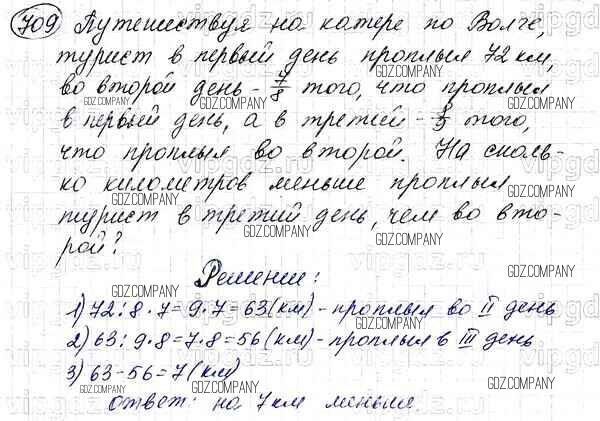 709 Путешествуя на катере по Волге,
турист в первый день проплыл 72 км,
во второй день - 7/8 того, что проплыл
в первый день, а в третий - 8/9 того,
что проплыл во второй. На сколь-
ко километров меньше проплыл
турист в третий день, чем во вто-
рой?
Решение:
1) 72:8·7=9·7=63(км) - проплыл во II день
2) 63:9·8=7·8=56(км) - проплыл в III день
3) 63-56=7(км)
ответ: на 7 км меньше.